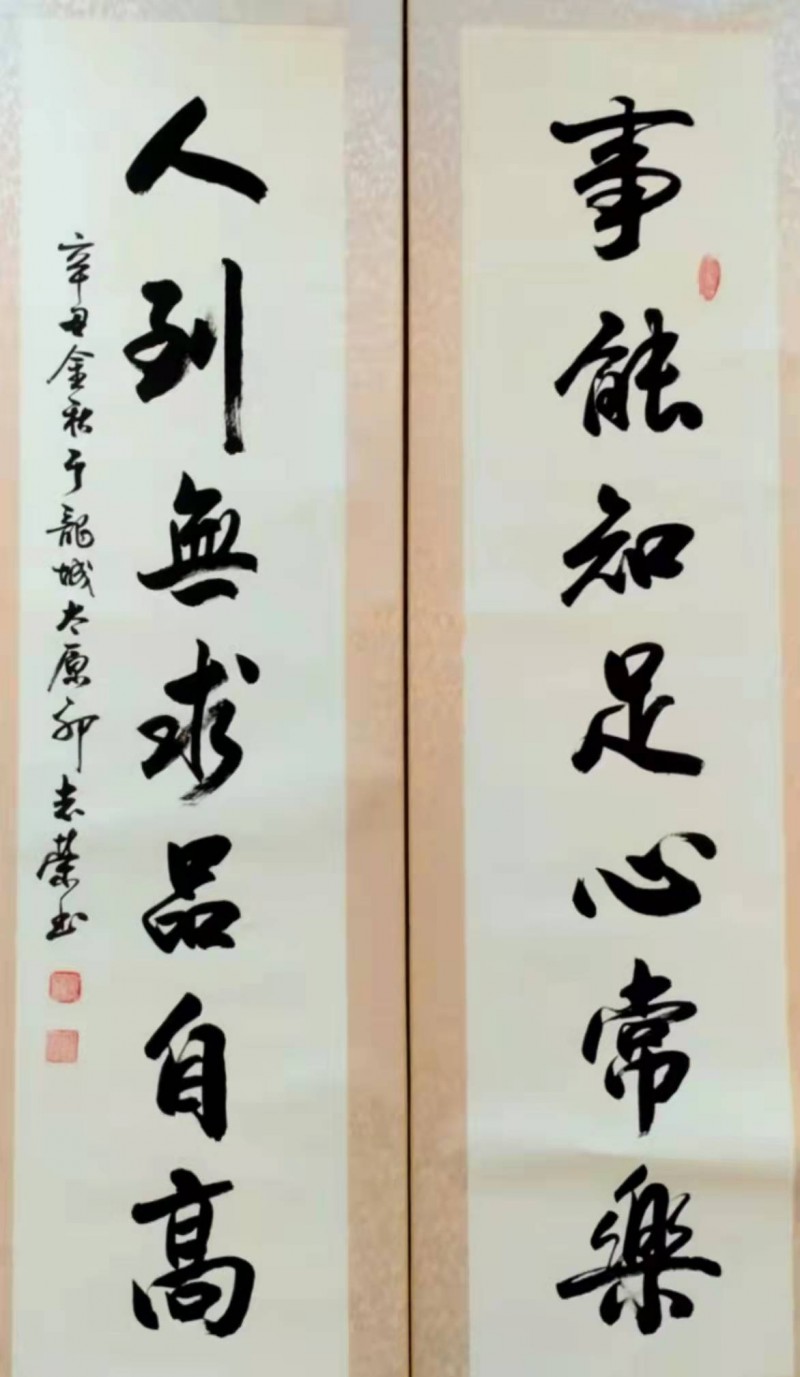 事能知足心常樂
人到無求品自高
辛丑金秋于龍城太原志榮书